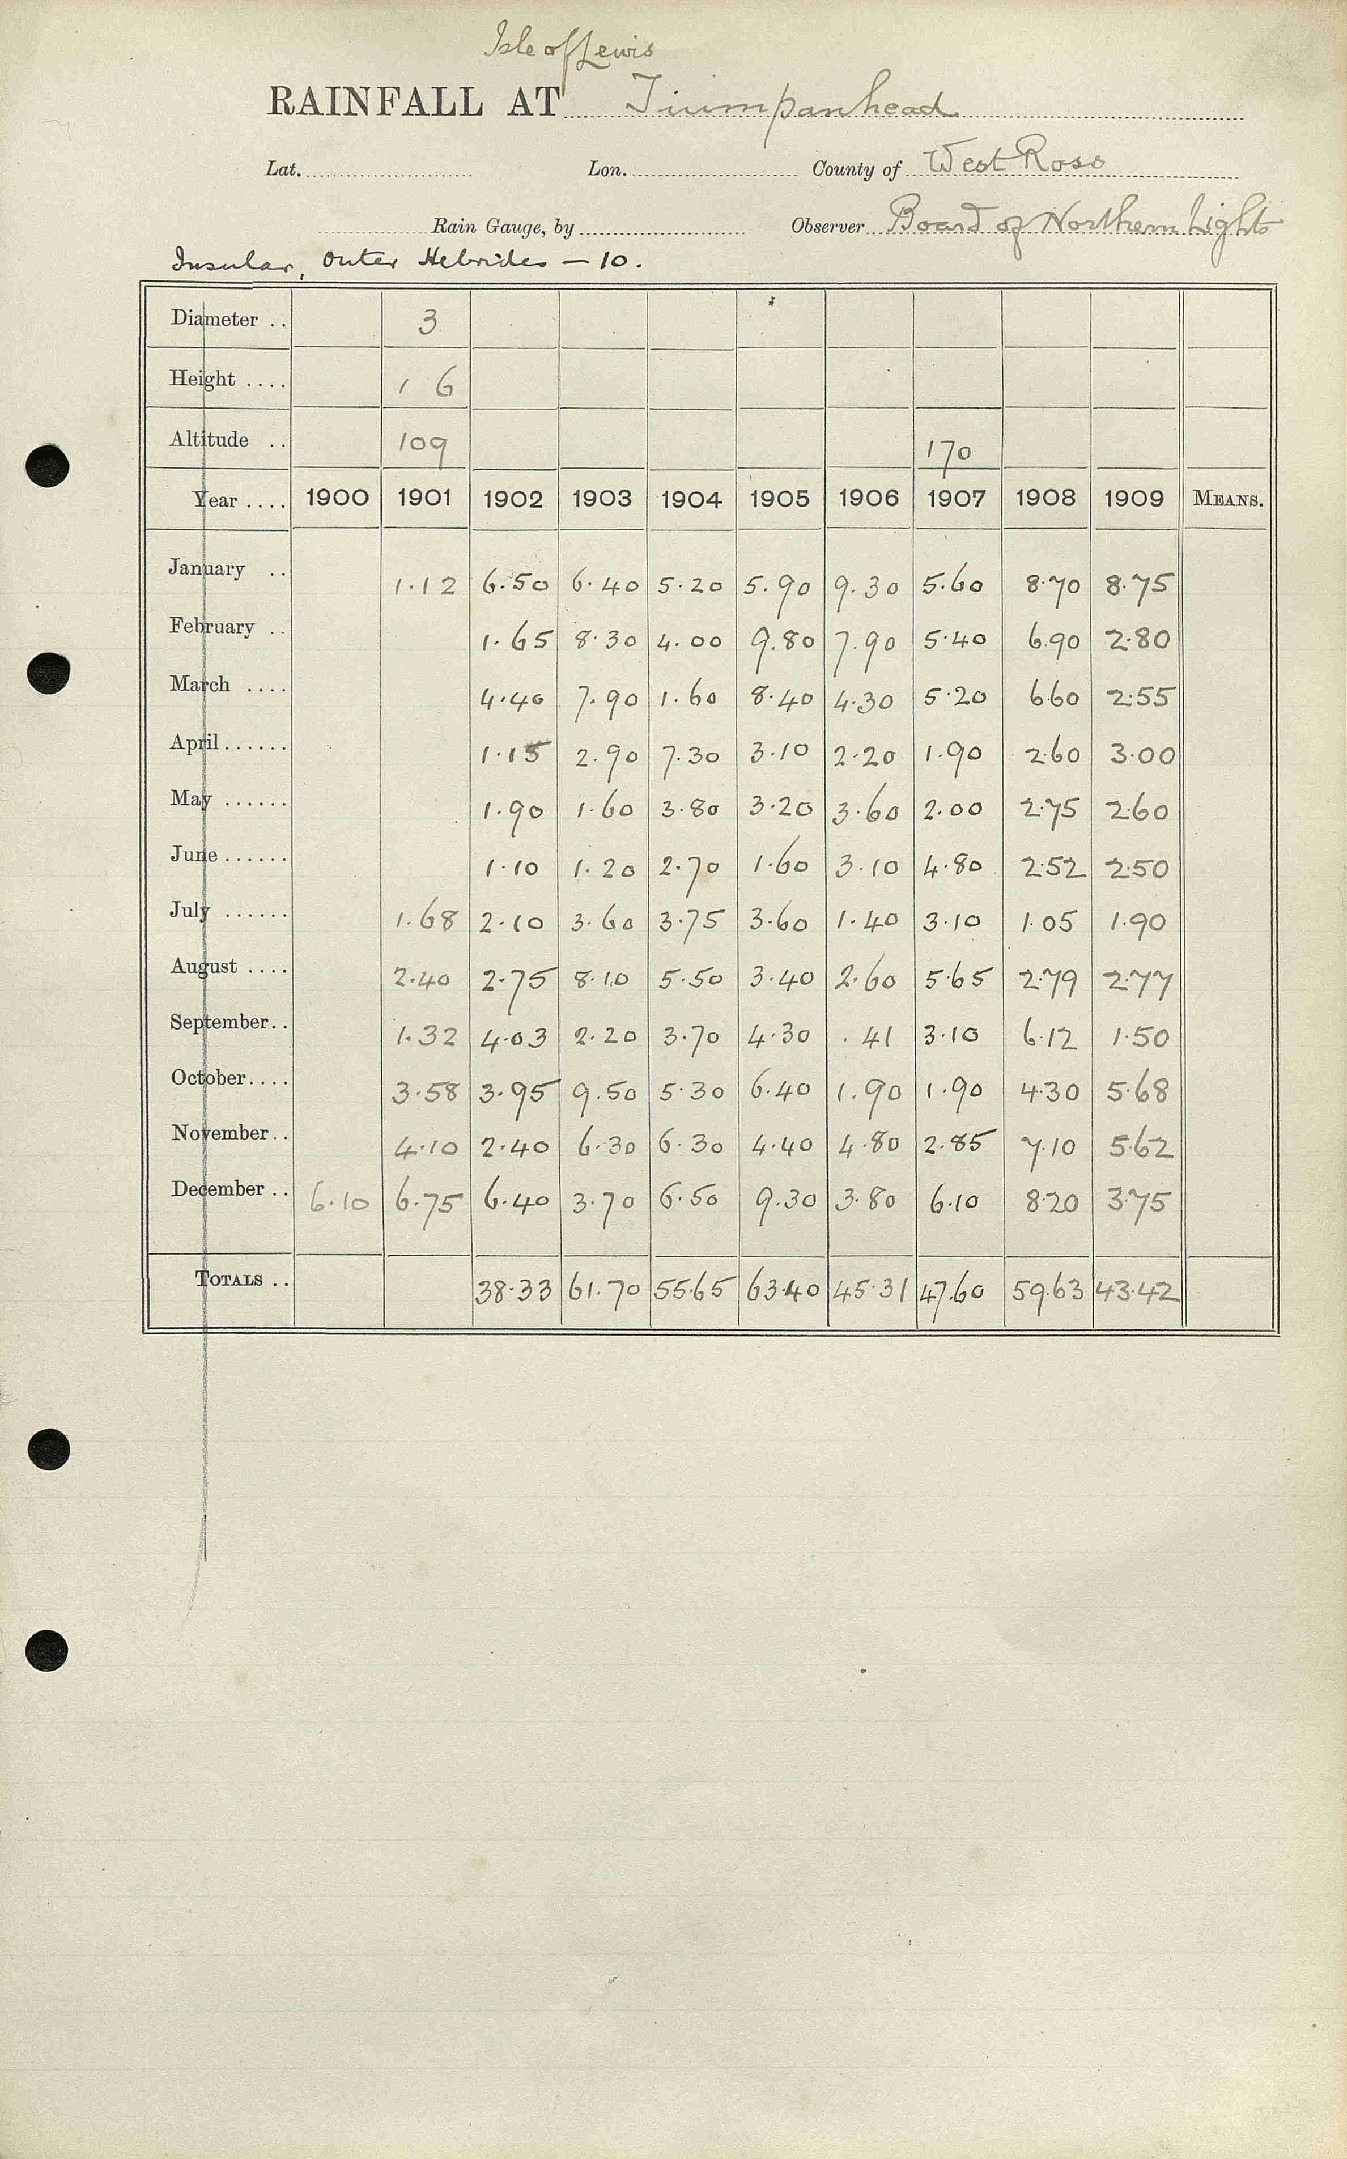 Isle of Lewis
RAINFALL AT Tiumpanhead
Lat. Lon. County of West Ross
Rain Gauge, by Observer Board of Northern Lights
Insular, Outer Hebrides — 10.
Diameter .. 3
Height .... 1 6
Altitude .. 109 170
Year .... 1900 1901 1902 1903 1904 1905 1906 1907 1908 1909 MEANS.
January .. 1.12 6.50 6.40 5.20 5.90 9.30 5.60 8.70 8.75
February .. 1.65 8.30 4.00 9.80 7.90 5.40 6.90 2.80
March .... 4.40 7.90 1.60 8.40 4.30 5.20 6.60 2.55
April...... 1.15 2.90 7.30 3.10 2.20 1.90 2.60 3.00
May ...... 1.90 1.60 3.80 3.20 3.60 2.00 2.75 2.60
June...... 1.10 1.20 2.70 1.60 3.10 4.80 2.52 2.50
July ...... 1.68 2.10 3.60 3.75 3.60 1.40 3.10 1.05 1.90
August .... 2.40 2.75 8.10 5.50 3.40 2.60 5.65 2.79 2.77
September.. 1.32 4.03 2.20 3.70 4.30 .41 3.10 6.12 1.50
October.... 3.58 3.95 9.50 5.30 6.40 1.90 1.90 4.30 5.68
November.. 4.10 2.40 6.30 6.30 4.40 4.80 2.85 7.10 5.62
December .. 6.10 6.75 6.40 3.70 6.50 9.30 3.80 6.10 8.20 3.75
TOTALS .. 38.33 61.70 55.65 63.40 45.31 47.60 59.63 43.42